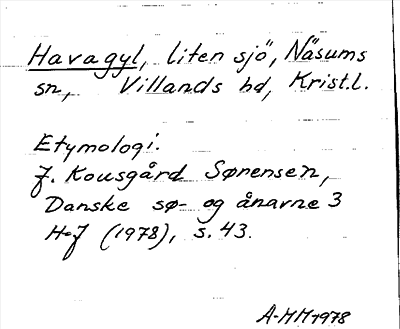 Havagyl, liten sjö, Näsums
sn, Villands hd, Krist.l.
Etymologi:
J. Kousgård Sørensen,
Danske sø- og ånavne 3
H-J (1978), s. 43.
A-MM 1978